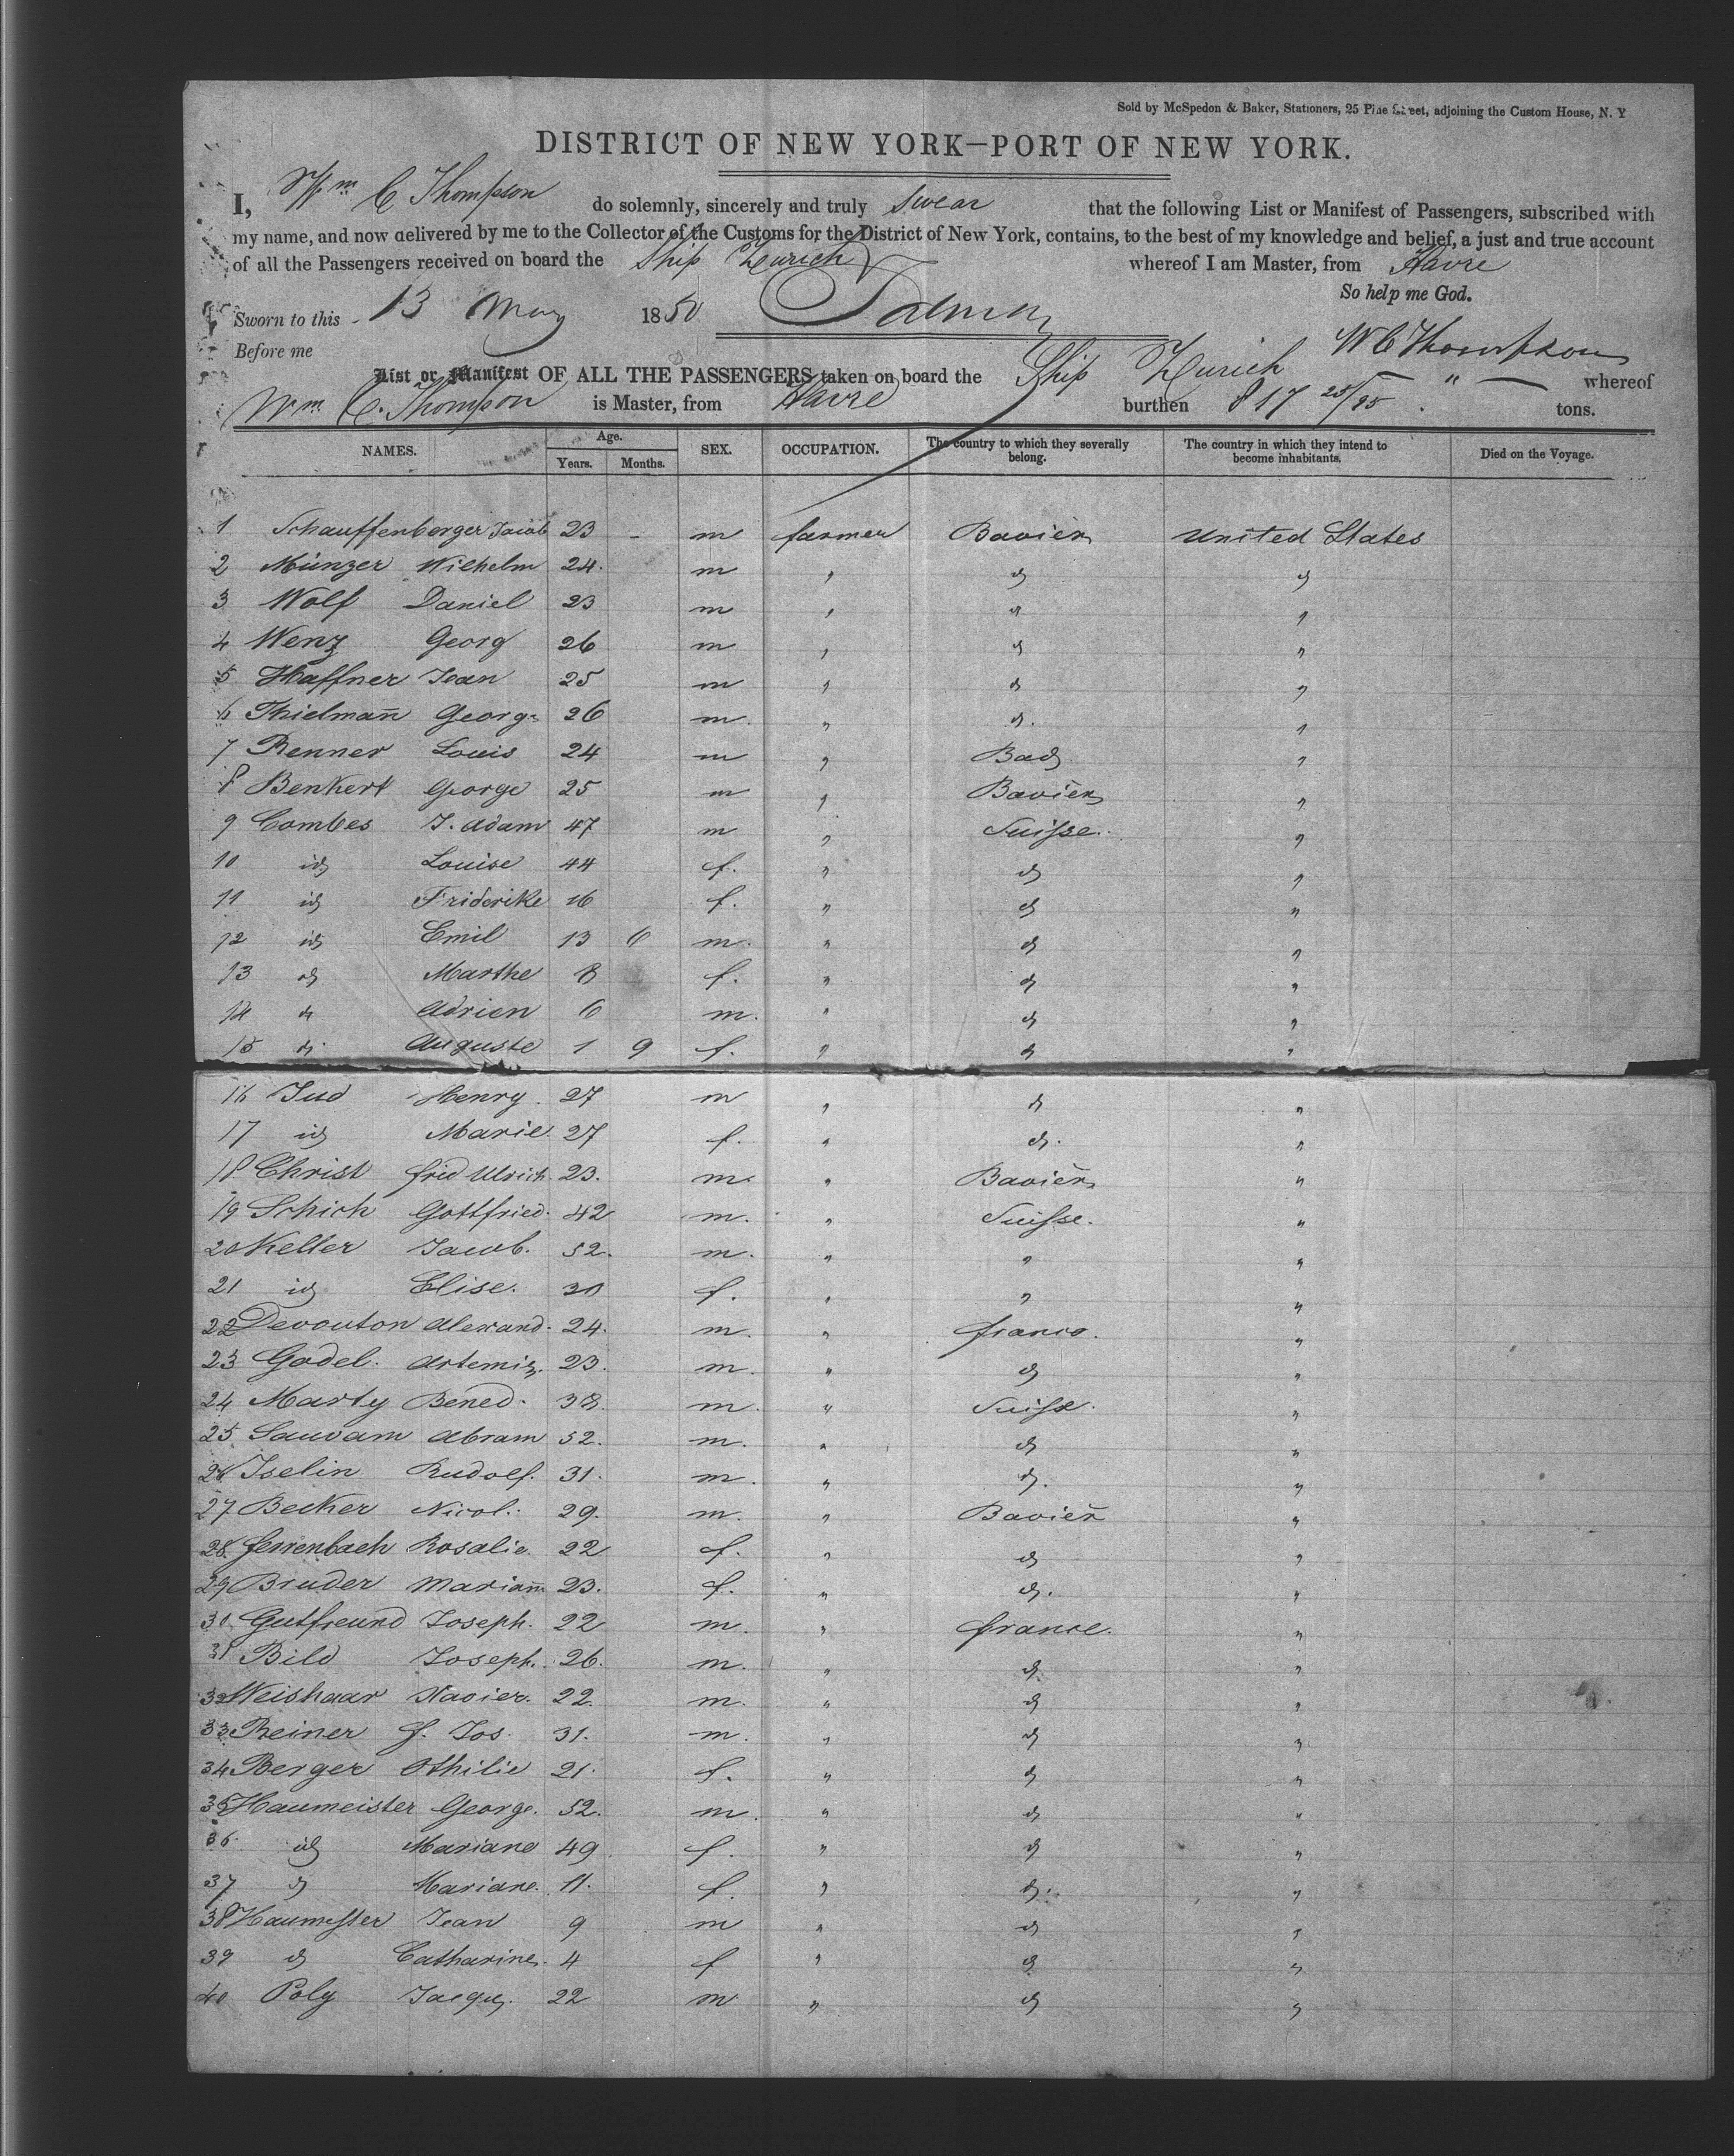 Sold by McSpedon & Baker, Stationers, 25 Pine Street, adjoining the Custom House, N. Y
DISTRICT OF NEW YORK—PORT OF NEW YORK.
I, Wm C Thompson do solemnly, sincerely and truly swear that the following List or Manifest of Passengers, subscribed with
my name, and now delivered by me to the Collector of the Customs for the District of New York, contains, to the best of my knowledge and belief, a just and true account
of all the Passengers received on board the Ship Zurich whereof I am Master, from Havre
So help me God.
Sworn to this 13 May 1850
W C Thompson
Before me
List or Manifest OF ALL THE PASSENGERS taken on board the Ship Zurich " whereof
Wm C. Thompson is Master, from Havre burthen 817 25/95 tons.
NAMES. Age. Years. Months. SEX. OCCUPATION. The country to which they severally belong. The country in which they intend to become inhabitants. Died on the Voyage.
1 Schauffenberger Jacob 23 - m farmer Bavière United States
2 Münzer Wilhelm 24. m " d "
3 Wolf Daniel 23 m " d "
4 Wenz Georg 26 m " d "
5 Haffner Jean 25 m " d "
6 Thielmañ George 26 m. " d. "
7 Renner Louis 24 m " Bade "
8 Benkert George 25 m " Bavière "
9 Combes J. Adam 47 m " Suisse. "
10 id Louise 44 f. " d "
11 id Friderike 16 f. " d "
12 id Emil 13 6 m. " d "
13 d Marthe 8 f. " d "
14 d Adrien 6 m. " d "
15 d Auguste 1 9 f. " d "
16 Jud Henry. 27 m " d "
17 id Marie. 27 f. " d. "
18 Christ fried Ulrich. 23. m. " Bavière "
19 Schich Gottfried. 42 m. " Suisse. "
20 Keller Jacob. 52. m. " " "
21 id Elise. 30 f. " " "
22 Devouton Alexand. 24. m. " france. "
23 Godel. Artemis. 23. m. " d "
24 Marty Bened. 38. m. " Suisse. "
25 Abram 52. m. " d "
26 Iselin Rudolf. 31. m. " d. "
27 Becker Nicol. 29. m. " Bavière "
28 ferrenbach Rosalie. 22 f. " d "
29 Bruder Mariañ 23. f. " d. "
30 Gutfreund Joseph. 22 m. " france. "
31 Bild Joseph. 26. m. " d "
32 Weishaar Xavier. 22. m. " d "
33 Reiner f. Jos. 31. m. " d "
34 Berger Othilie 21. f. " d "
35 Haumeister George. 52. m. " d "
36. id Mariane 49. f. " d "
37 d Mariane. 11. f. " d. "
38 Haumesster Jean 9 m " d "
39 d Catharine. 4 f " d "
40 Poly Jacques. 22 m " d "